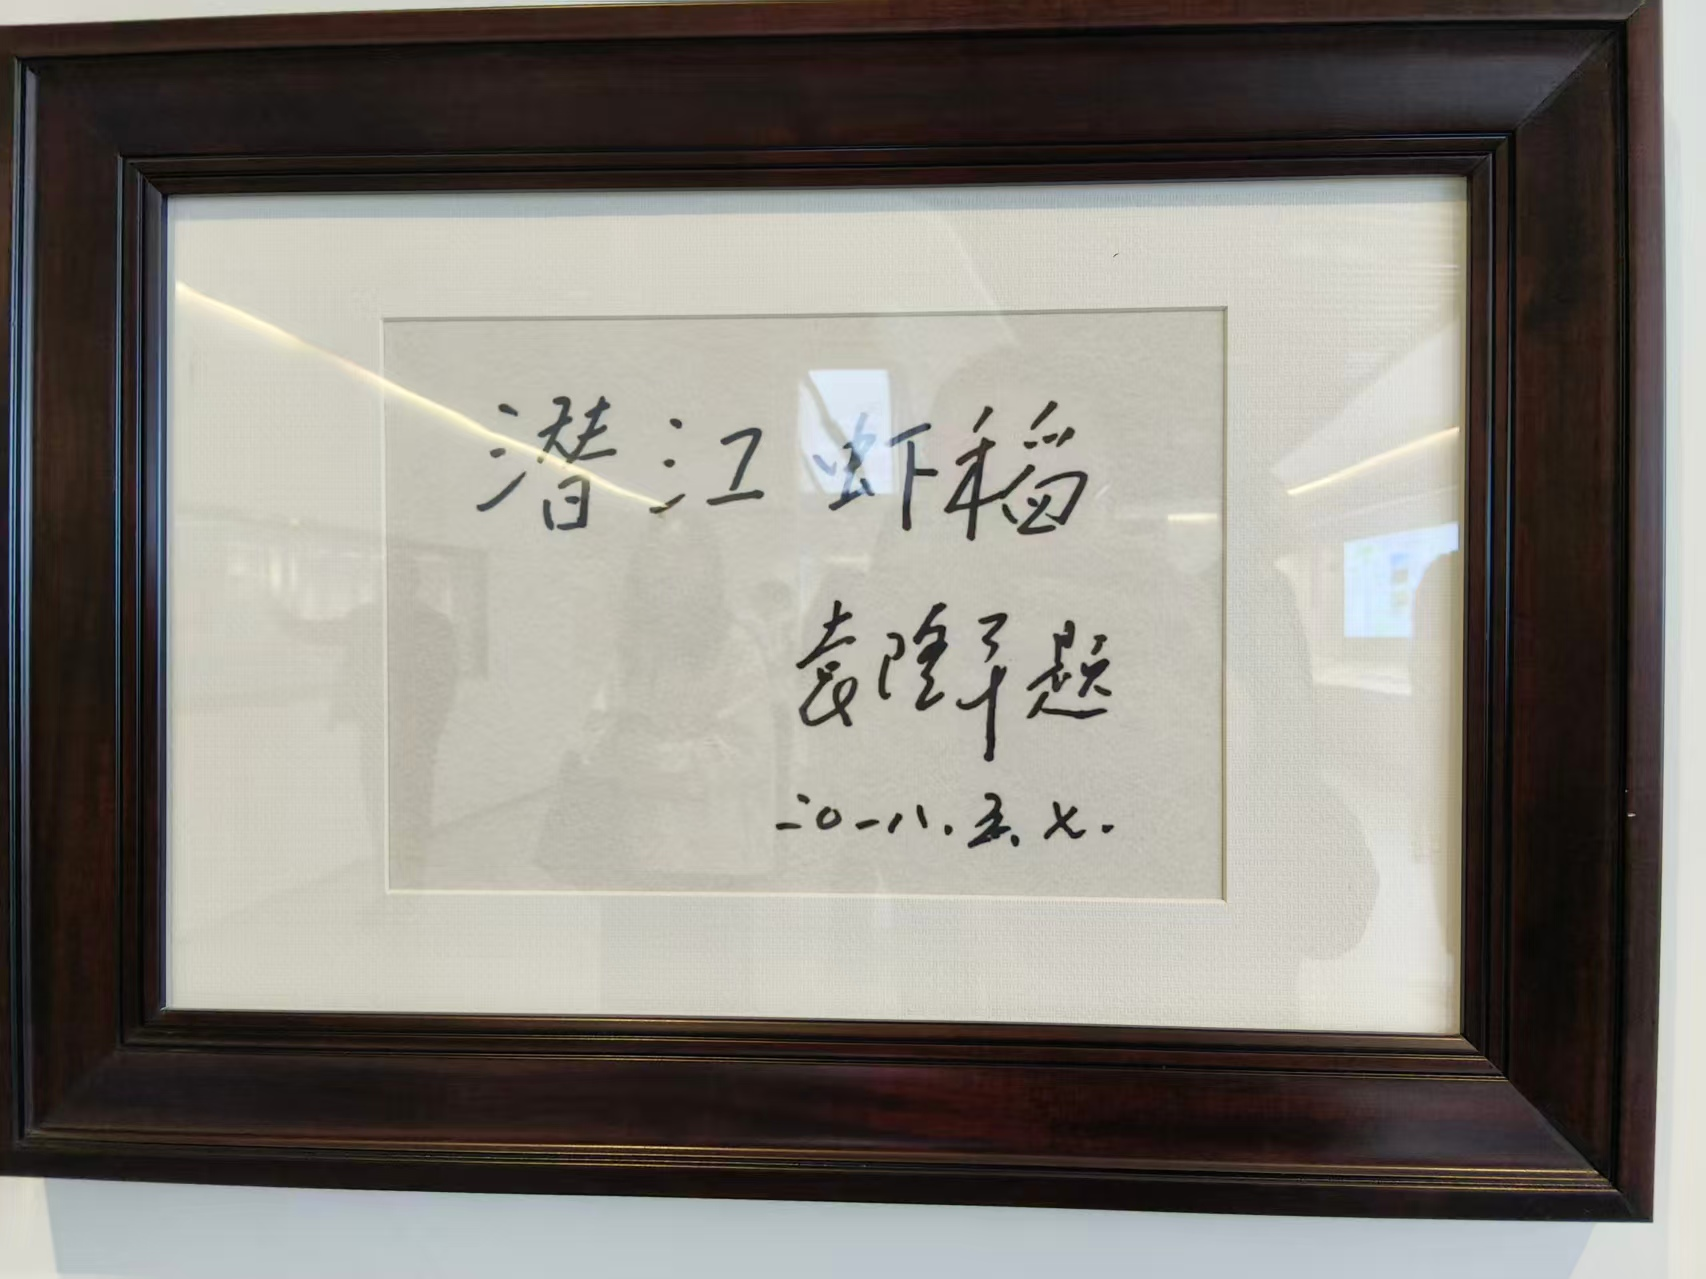 潜江虾稻
袁隆平题
二〇一八.五.七.